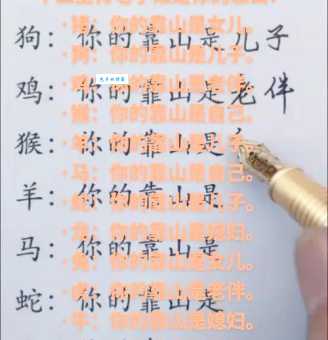 ·猪：你的靠山是女儿。
狗：你的靠山是儿子
·狗：你的靠山是儿子。
·鸡：你的靠山是老伴。
鸡：你的靠山是老伴
·猴：你的靠山是自己。
猴：你的靠山是
羊：你的靠山是
·马：你的靠山是自己。
·龙：你的靠山是媳妇。
马：你的靠山是
·兔：你的靠山是女儿。
·虎：你的靠山是老伴。
蛇：你的靠山是
·牛：你的靠山是媳妇。